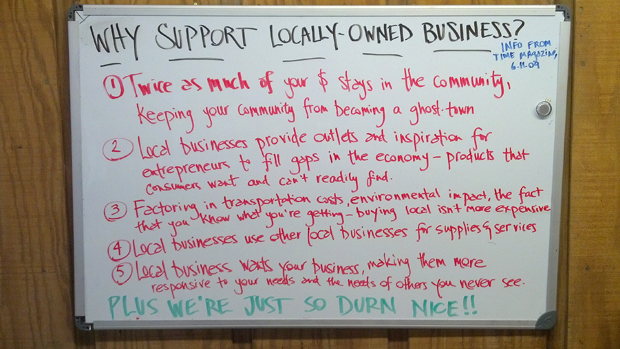 WHY SUPPORT LOCALLY-OWNED BUSINESS?
INFO FROM
TIME MAGAZINE,
6.11.09
1 Twice as much of your $ stays in the community,
Keeping your community from becoming a ghost-town
2 Local businesses provide outlets and inspiration for
entrepreneurs to fill gaps in the economy - products that
consumers want and can't readily find.
3 Factoring in transportation costs, environmental impact, the fact
that you know what you're getting - buying local isn't more expensive
4 Local businesses use other local businesses for supplies & services
5 Local business wants your business, making them more
responsive to your needs and the needs of others you never see.
PLUS WE'RE JUST SO DURN NICE!!